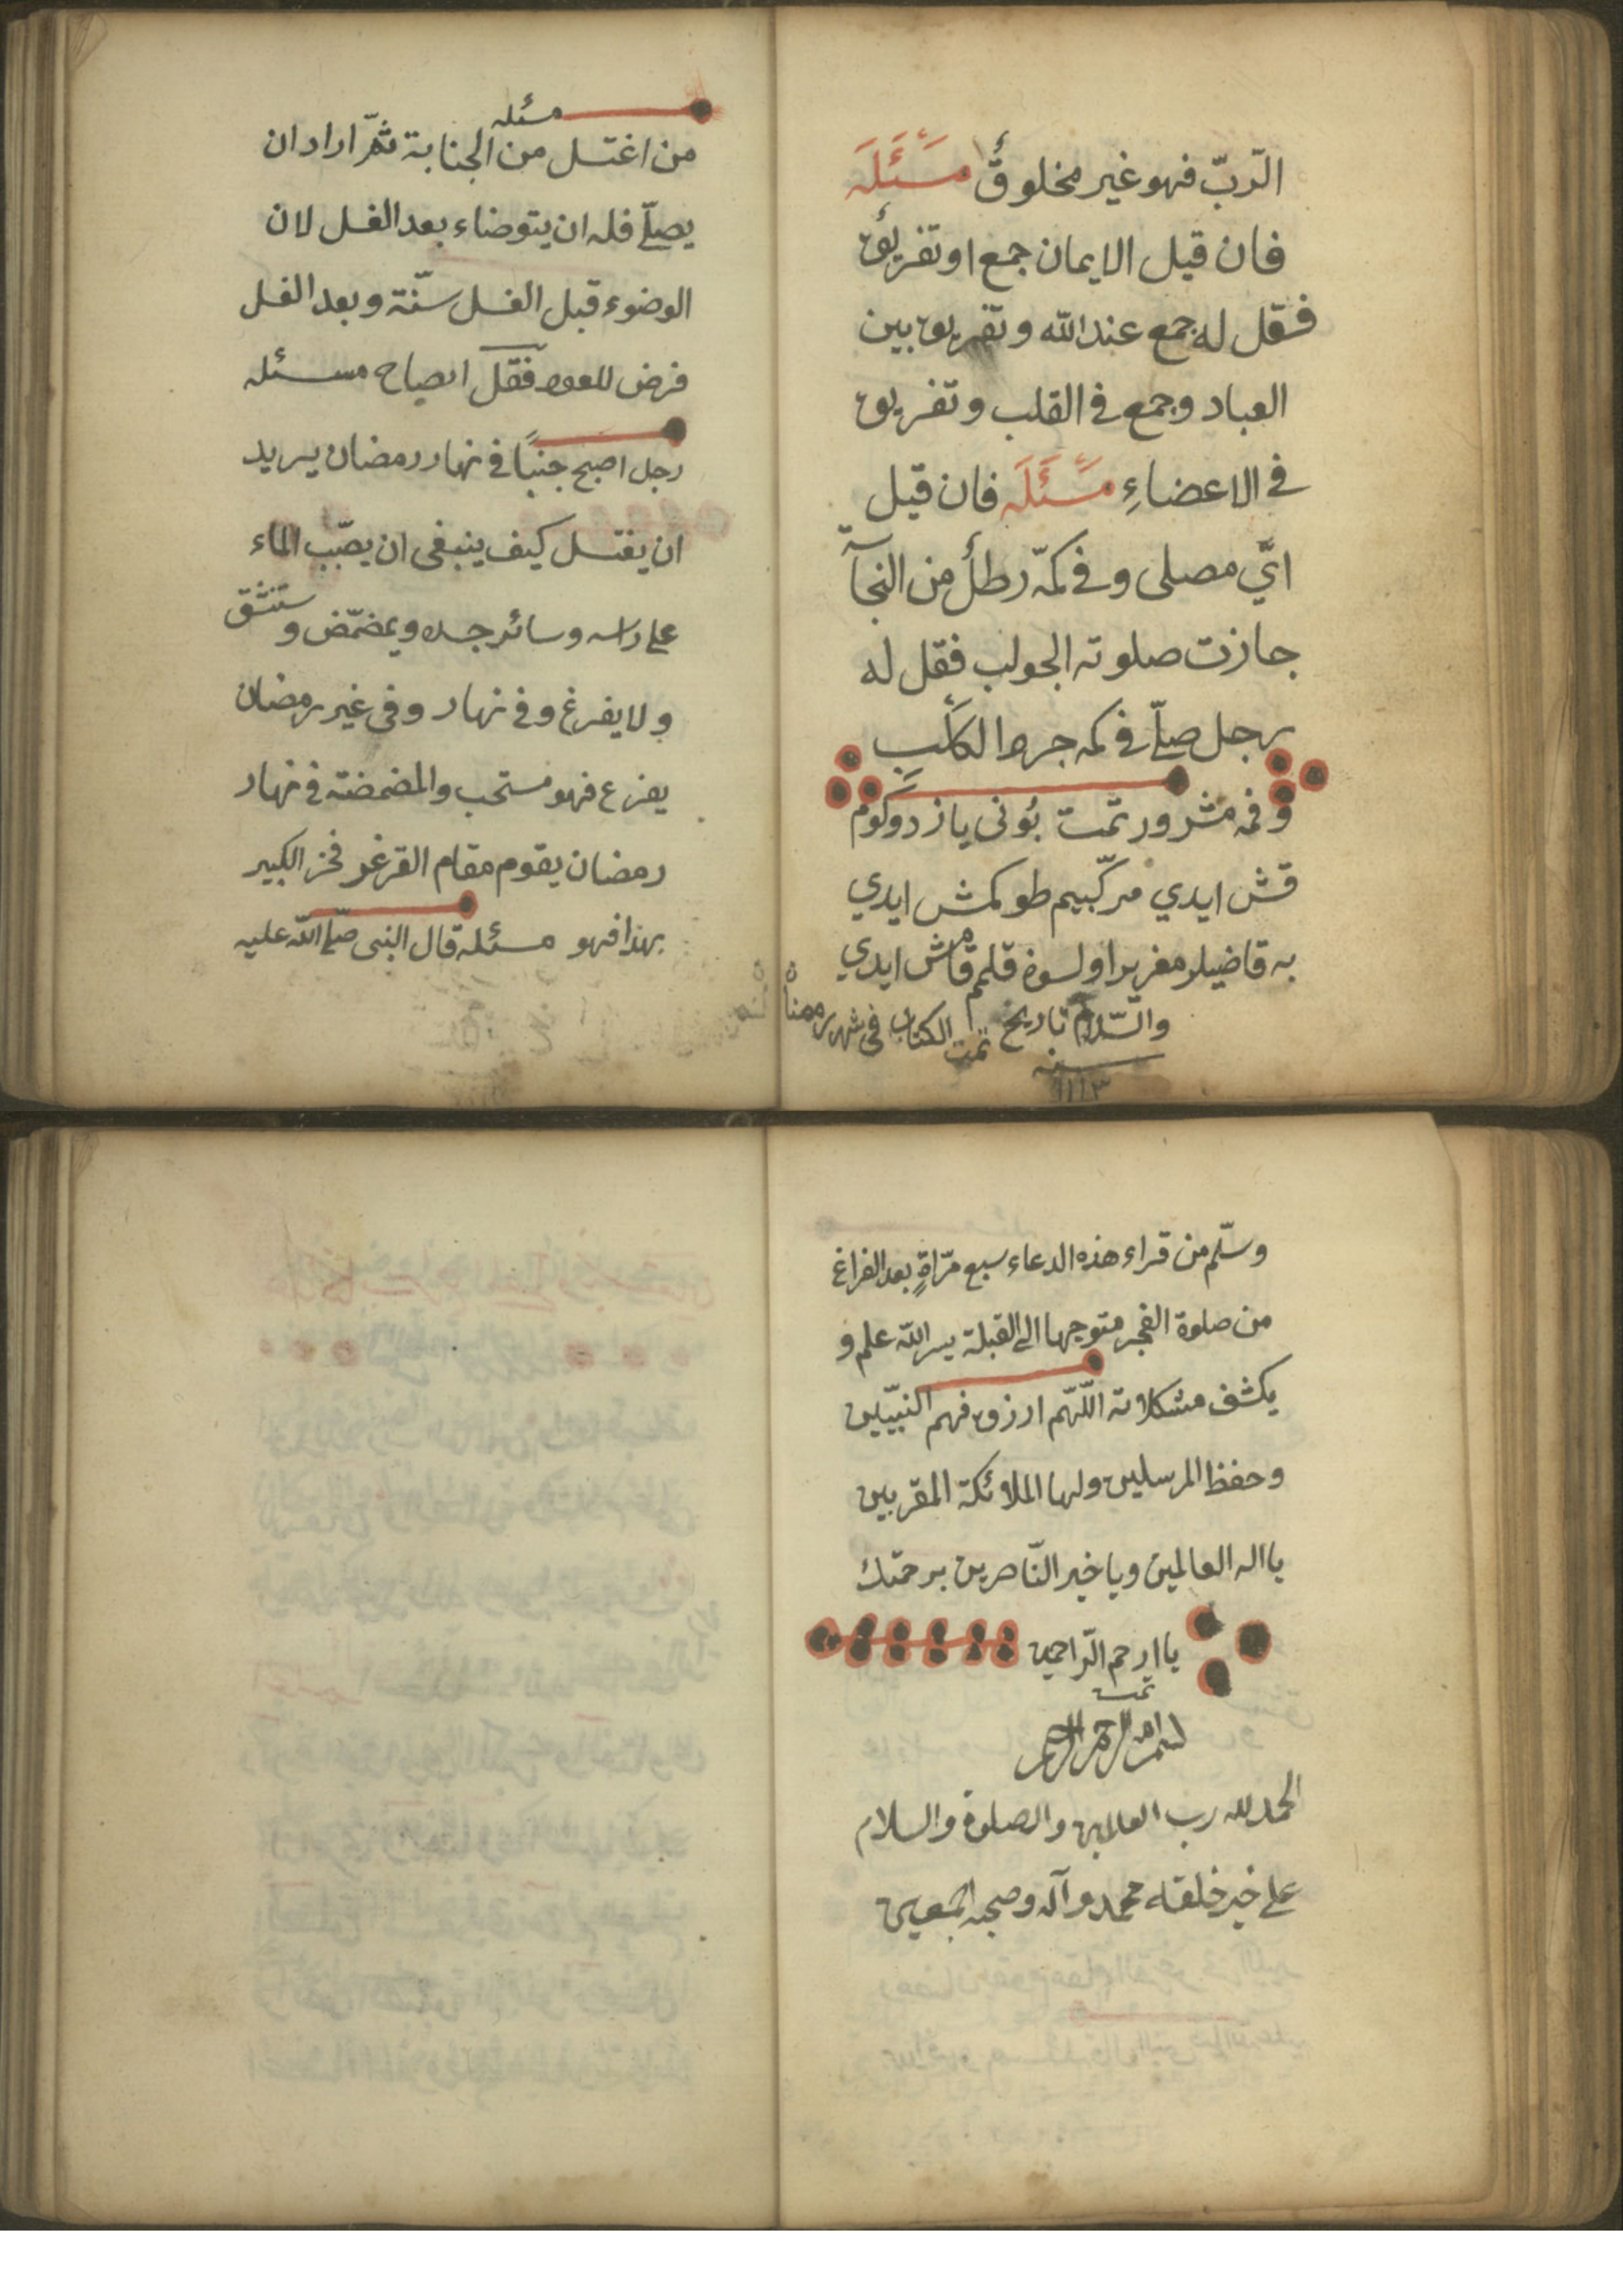 الرّبّ فهو غير مخلوق مَسْئَلَه
فان قيل الايمان جمع او تفريق
فقل له جمع عند الله وتفريق بين
العباد وجمع فى القلب وتفريق
فى الاعضاءِ مَسْئَلَه فان قيل
ايّ مصلى وفى كمّه رطل من النجاسة
جازت صلوته الجواب فقل له
رجل صلّى فى كمه جرو الكلب
وفمه مشرور تمت بونى ياز دوكوم
قش ايدي مركّبيم طوكمش ايدي
به قاضيلر مغربرا ولسون قلم قامش ايدي
والسّلام تاريخ تمت الكتاب فى شهر رمضان
سنه
١١١٣
مسئله
من اغتسل من الجنابة ثمّ اراد ان
يصلّى فله ان يتوضاء بعد الغسل لان
الوضوء قبل الغسل سنّة وبعد الغسل
فرض فقل مسئله
رجل اصبح جنبًا فى نهار رمضان يريد
ان يغتسل كيف ينبغى ان يصّبب الماء
على راسه وسائر جسده ويمضمّض و ستنشق
ولا يفرغ وفى نهار وفى غير رمضان
يغرغ فهو مستحب والمضمضة فى نهار
رمضان يقوم مقام الكبير
بهذا فهو مسئله قال النبى صلّى الله عليه
وسلّم من قراء هذه الدعاء سبع مرّاةٍ بعد الفراغ
من صلوة الفجر متوجها الى القبلة يسر الله علم و
يكشف مشكلاته اللّهّم ارزق فهم النبيّين
وحفظ المرسلين ولها الملائكة المقربين
يا اله العالمين ويا خير النّاصرين برحمتك
يا ارحم الرّاحمين
تمت
بسم الله الرحمن الرحيم
الحمد لله رب العالمين والصلوة والسلام
على خير خلقه محمد وآله وصحبه اجمعين